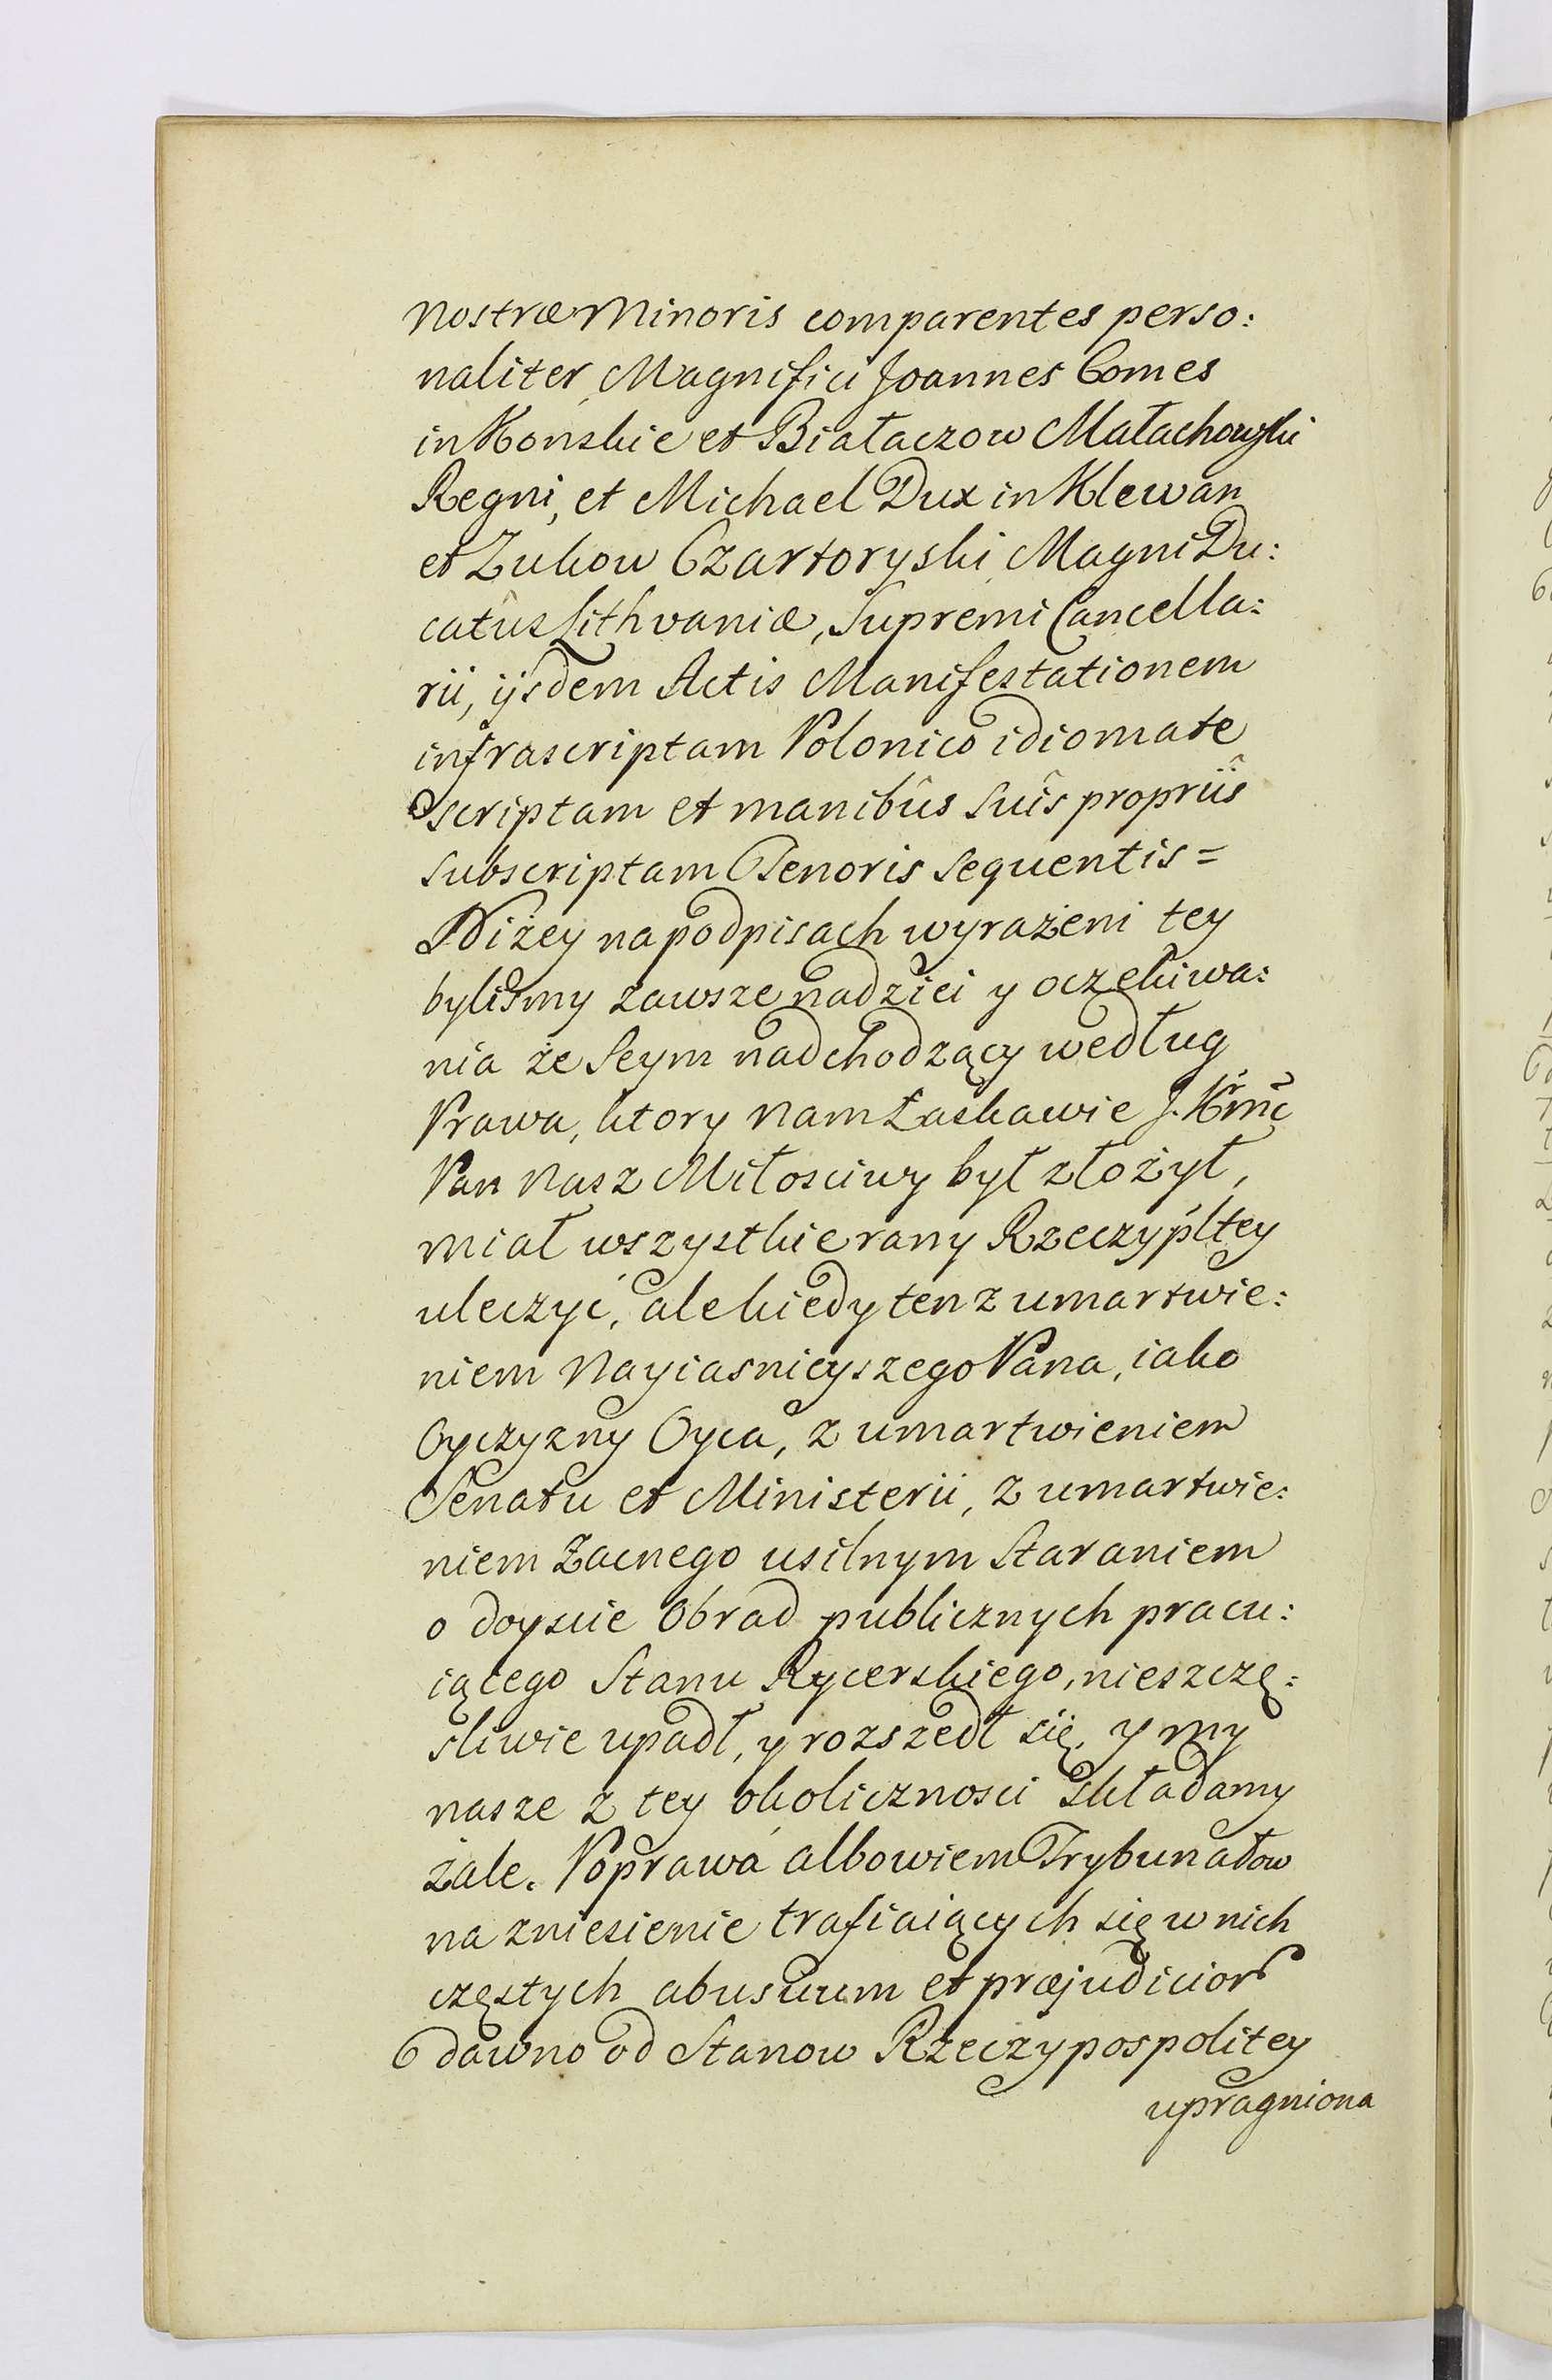 Nostræ Minoris comparentes perso:
naliter Magnifici Joannes Comes
in Konskie et Białaczow Małachowski
Regni, et Michael Dux in Klewan
et Zukow Czartoryski Magni Du:
catûs Lithvaniæ, Supremi Cancella:
rii, ijsdem Actis Manifestationem
infrascriptam Polonico idiomate
scriptam et manibûs suîs propriîs
subscriptam Tenoris sequentis =
Niżey na podpisach wyrażeni tey
bylismy zawsze nadziei y oczekiwa:
nia że Seym nadchodzący według
Prawa, ktory nam Łaskawie J. Krmć
Pan nasz Miłosciwy był złożył,
miał wszystkie rany Rzeczypltey
uleczyć, ale kiedy ten z umartwie:
niem Nayiasnieyszego Pana, iako
Oyczyzny Oyca, z umartwieniem
Senatu et Ministerii, z umartwie:
niem Zacnego usilnym staraniem
o doyscie obrad publicznych pracu:
iącego Stanu Rycerskiego, nieszczę:
sliwie upadł, y rozszedł się, y my
nasze z tey okolicznosci składamy
żale. Poprawa albowiem Trybunałow
na zniesienie trafiaiących się w nich
częstych abusuum et præjudicior
dawno od Stanow Rzeczypospolitey
upragniona